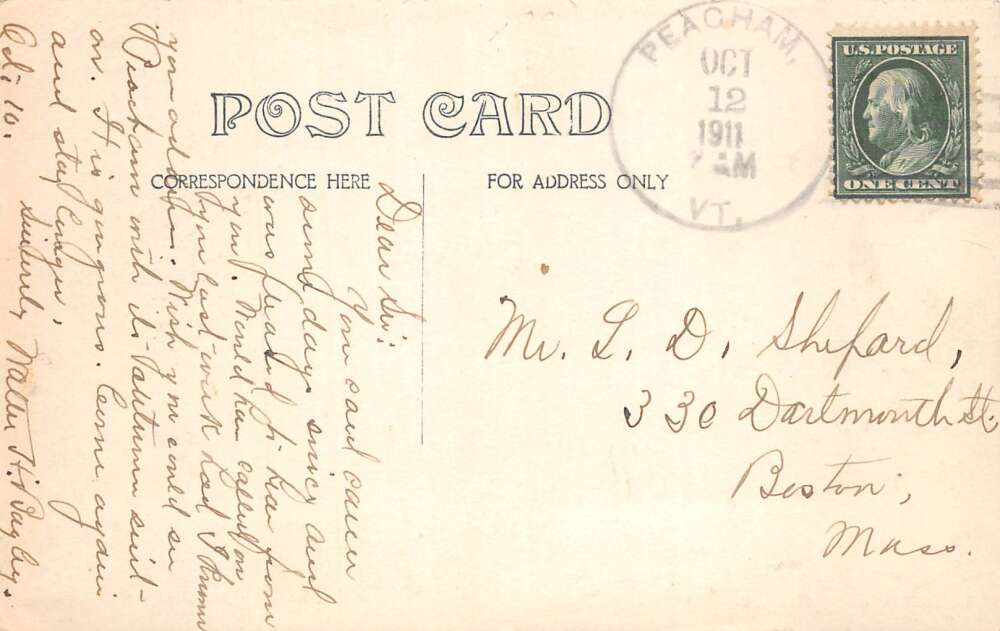 POST CARD
CORRESPONDENCE HERE
FOR ADDRESS ONLY
PEACHAM,
OCT
12
1911
AM
VT.
U.S. POSTAGE
ONE CENT
Dear Sir:
Your card came
some days since and
was pleased to hear from
you. Would have called on
you last week had I known
your address. Wish you could see
Peacham with its Autumn suit
on. It is gorgeous. Come again
and stay longer.
Sincerely,
Walter H. Bayley.
Oct. 10.
Mr. L. D. Shepard,
330 Dartmouth St.
Boston,
Mass.